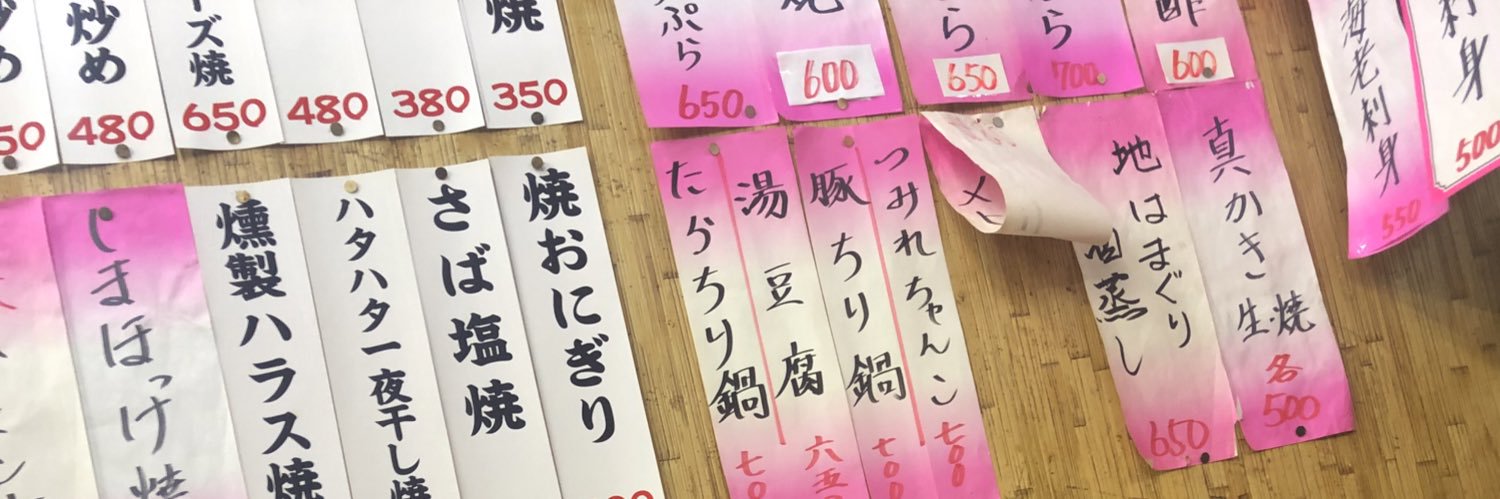 炒め
480
ーズ焼
650
480
380
焼
350
ぷら
650
600
ら
650
ら
700
酢
600
海老刺身
550
刺身
500
しまほっけ焼
燻製ハラス焼
ハタハタ一夜干し焼
さば塩焼
焼おにぎり
たらちり鍋
湯豆腐
豚ちり鍋
七〇〇
つみれちゃんこ
七〇〇
地はまぐり
蒸し
650
真かき
生・焼
各
500